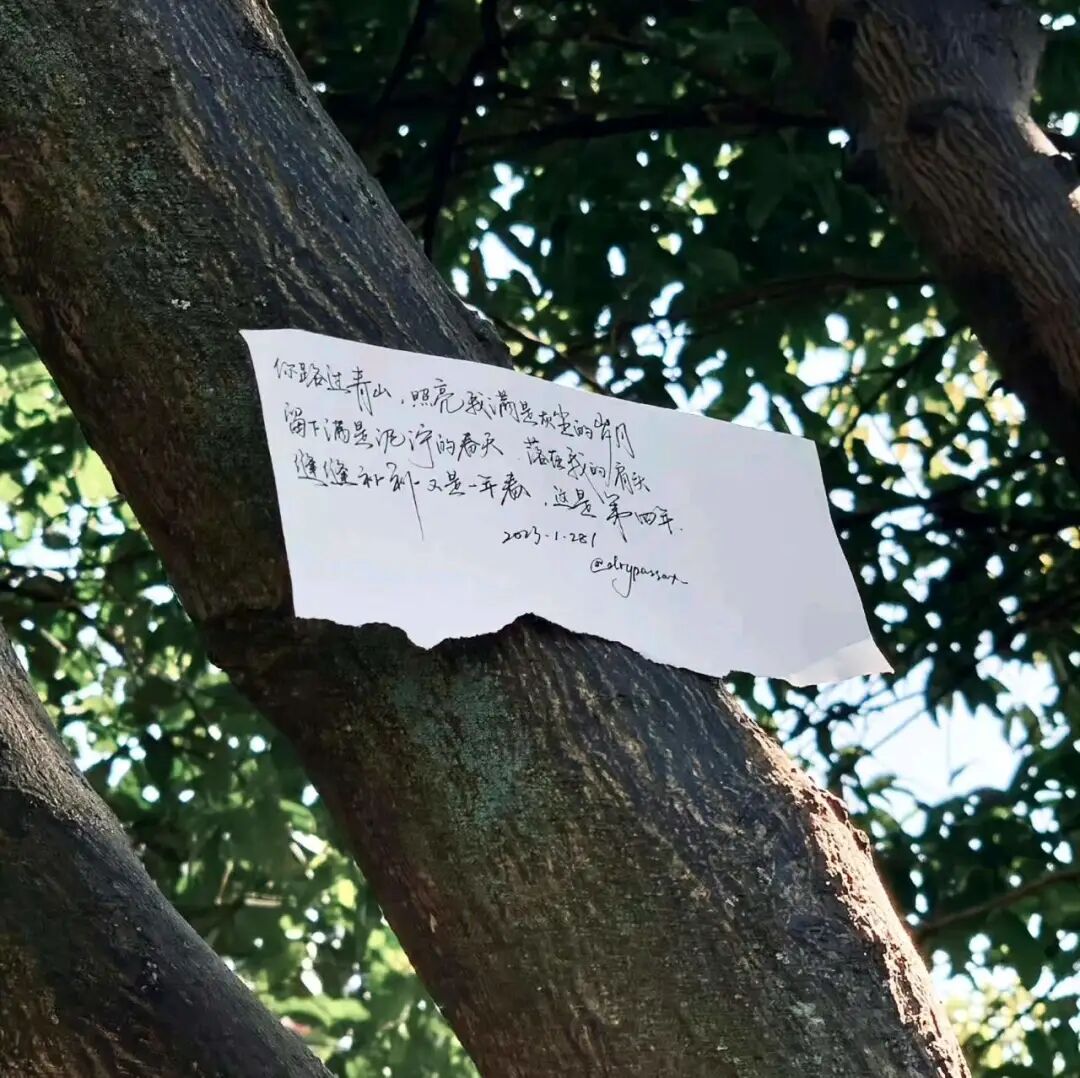 你路过青山,照亮我满是灰尘的岁月
留下满是泥泞的春天 落在我的肩头
缝缝补补又是一年春,这是第四年.
2023.1.28